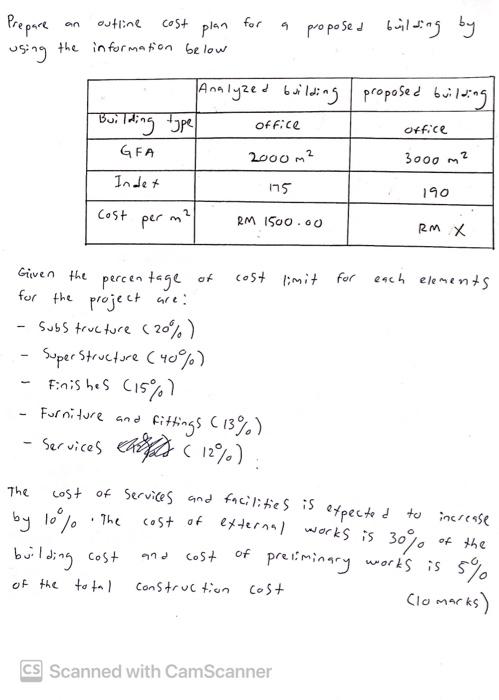 Prepare an outline cost plan for a proposed building by
using the information below
Analyzed building proposed building
Building type office office
GFA 2000 m² 3000 m²
Index 175 190
Cost per m² RM 1500.00 RM X
Given the percentage of cost limit for each elements
for the project are:
- Substructure (20%)
- Superstructure (40%)
- Finishes (15%)
- Furniture and fittings (13%)
- Services (12%)
The cost of services and facilities is expected to increase
by 10%. The cost of external works is 30% of the
building cost and cost of preliminary works is 5%
of the total construction cost
(10 marks)
CS Scanned with CamScanner